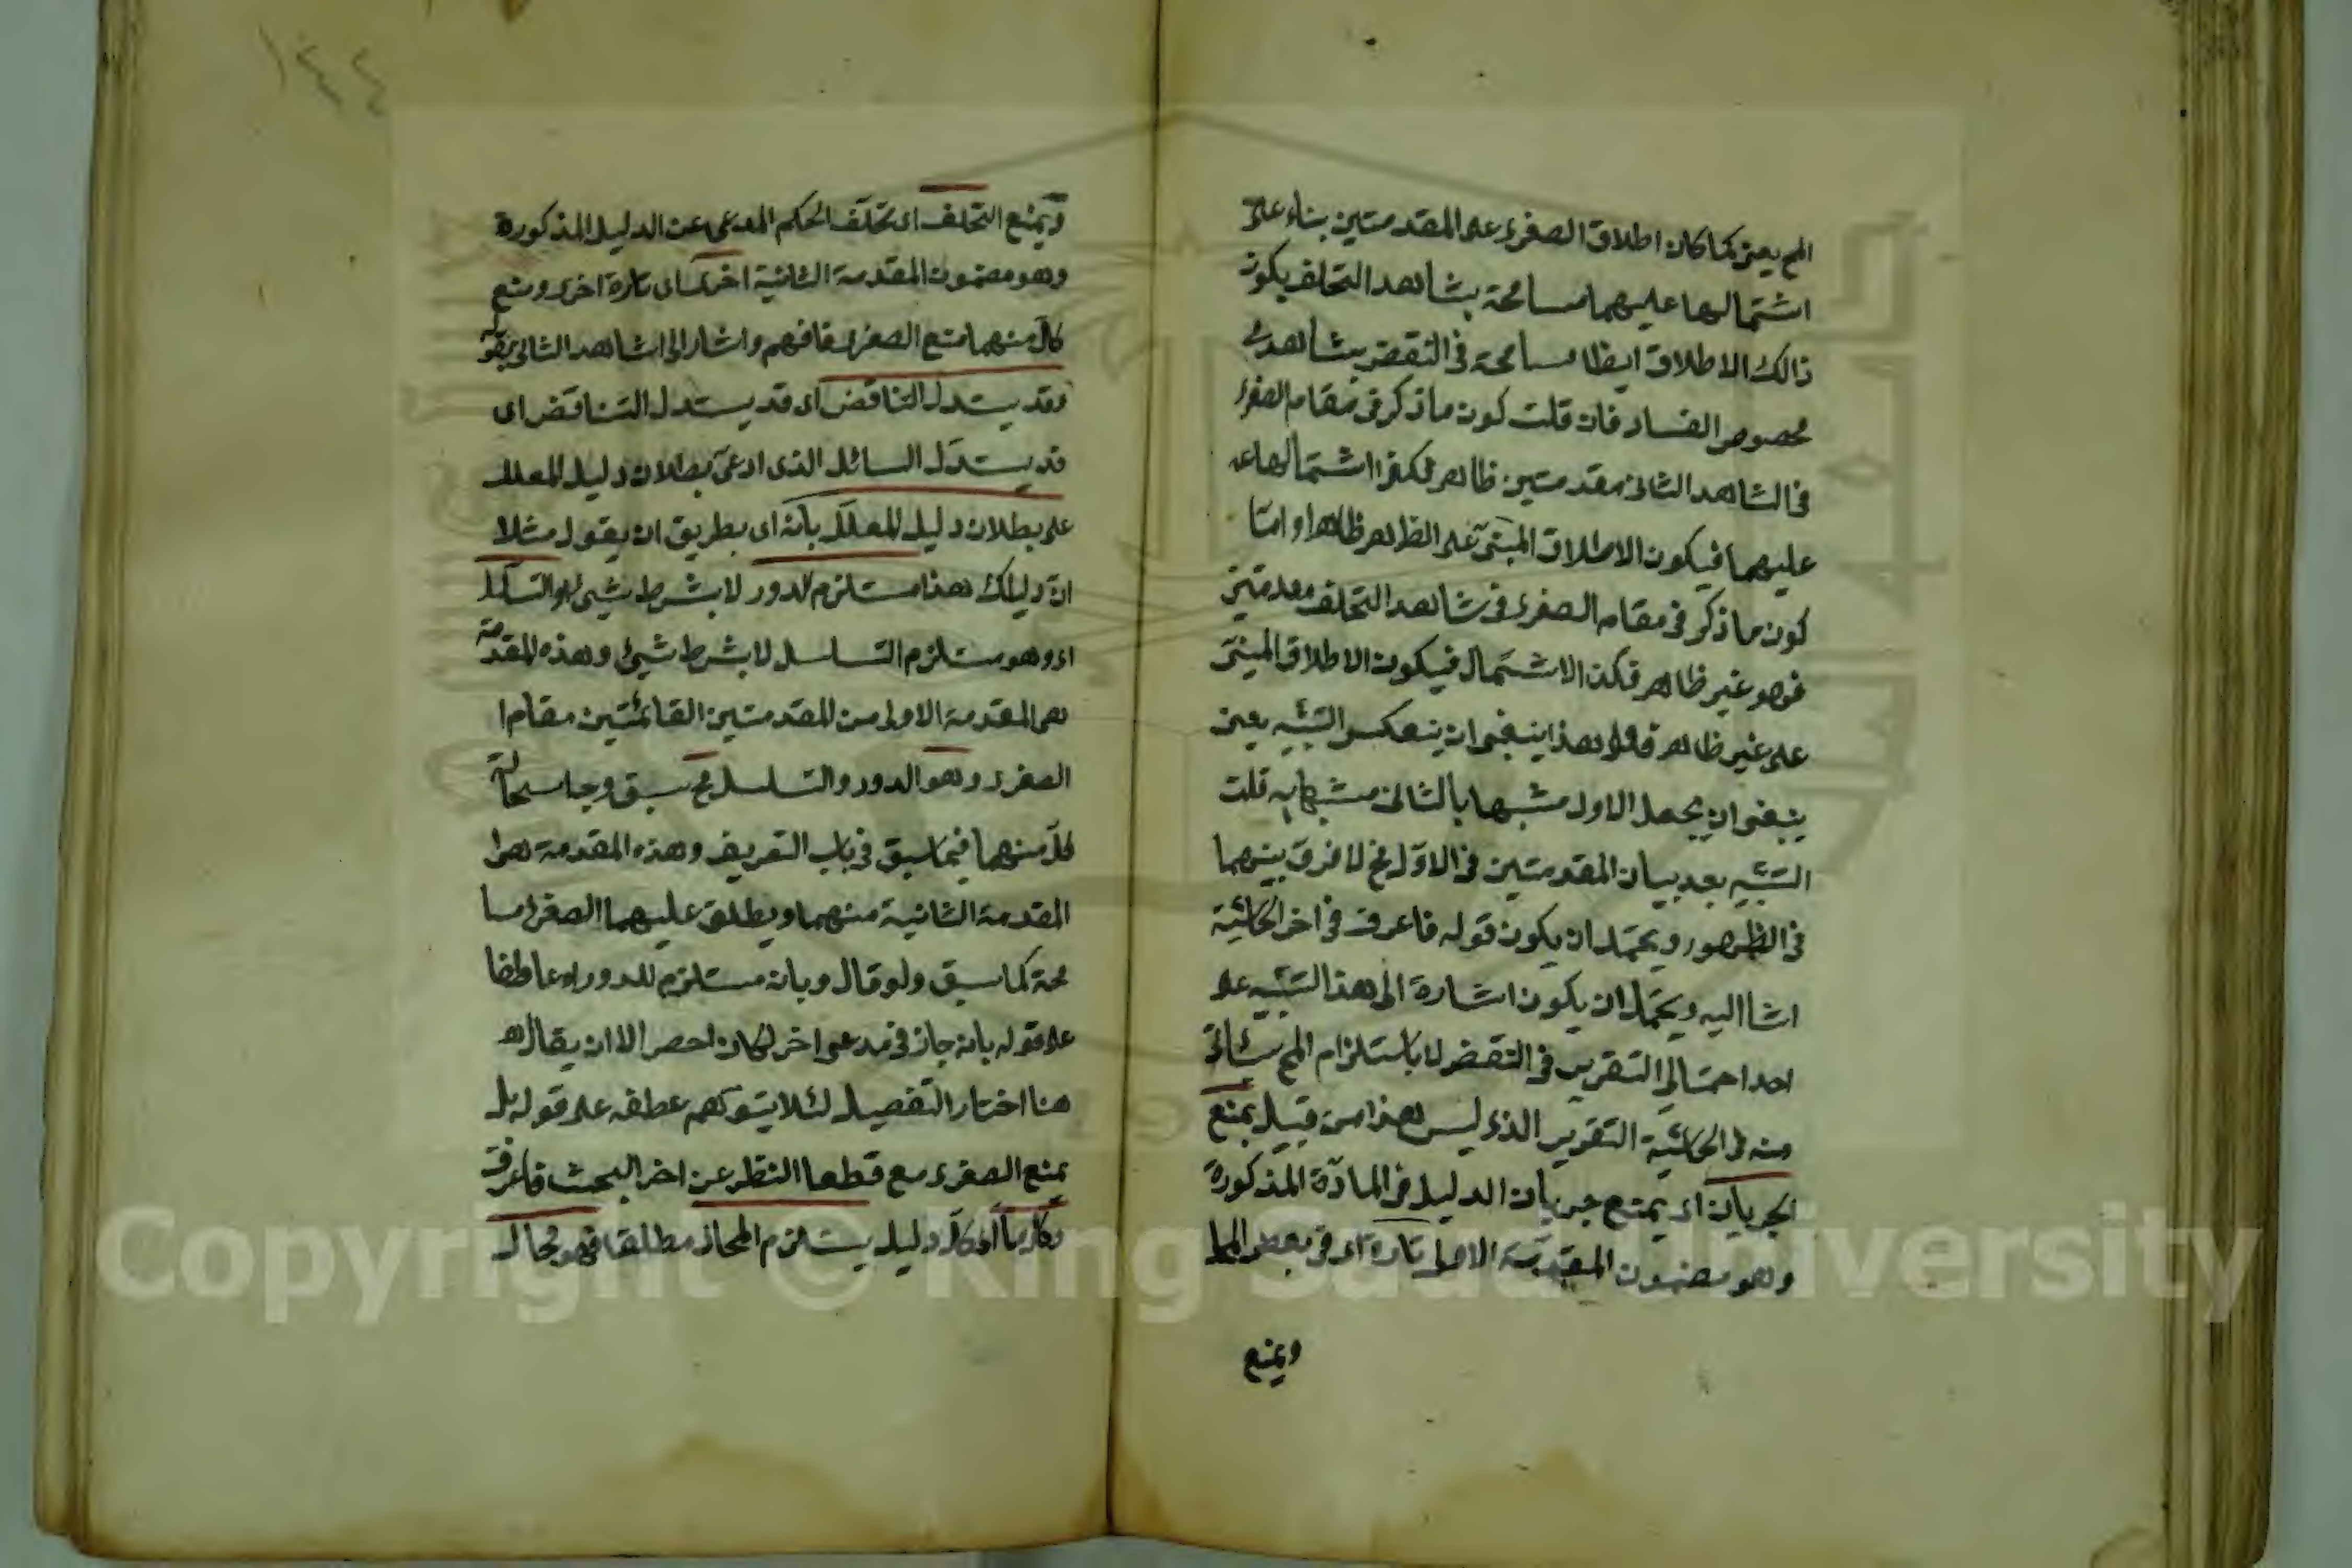 المح يعني كما كان اطلاق الصغرى على المقدمتين بناء على
اشتمالها عليهما مسامحة بشاهد التخلف يكون
ذالك الاطلاق ايظا مسامحة فى النقض بشاهد
خصوص الفساد فان قلت كون ما ذكر فى مقام الصغرى
فى الشاهد الثانى مقدمتين ظاهر اشتمالها
عليهما فيكون الاطلاق المبنى على الظاهر ظاهرا واما
كون ما ذكر فى مقام الصغرى فى شاهد التخلف مقدمتين
فهو غير ظاهر فكذا الاشتمال فيكون الاطلاق المبنى
على غير ظاهر فعلى هذا ينبغى ان ينعكس التشبيه يعنى
ينبغى ان يجعل الاول مشبها بالثانى مشبها به قلت
التشبيه بعد بيان المقدمتين فى الاول فح لا فرق بينهما
فى الظهور ويحتمل ان يكون قوله فاعرف فى اخر الحاشية
اشا اليه ويحتمل ان يكون اشارة الى هذا التشبيه على
احد احتمالى التقرير فى النقض لا باستلزام المح
منه فى الحاشية التقرير الذى ليس هذا من قبيل يمنع
الجريان اى يمنع جريان الدليل فى المادة المذكورة
وهو مضمون المقدمة الاولى تارة اى فى بعض
ويمنع
١٤٤
ويمنع التخلف اى تخلف الحكم المدعى عن الدليل المذكورة
وهو مضمون المقدمة الثانية اخرى اى تارة اخرى ومنع
كل منهما منع الصغرى فافهم واشار الى الشاهد الثانى بقوله
وقد يستدل التناقض اى قد يستدل التناقض اى
قد يستدل السائل الذى ادعى بطلان دليل المعلل
على بطلان دليل المعلل بانه اى بطريق ان يقول مثلا
ان دليلك هذا مستلزم الدور لا بشرط شيئ او التسلسل
اى وهو مستلزم التسلسل لا بشرط شيئ وهذه المقدمة
هى المقدمة الاولى من المقدمتين القائمتين مقام ا
الصغرى وهو الدور والتسلسل مح سبق وجه استحالة
كل منهما فيما سبق فى باب التعريف وهذه المقدمة هى ا
المقدمة الثانية منهما ويطلق عليهما الصغرى مسا
محة كما سبق ولو قال وبانه مستلزم للدور اه عاطفا
على قوله بانه جاز فى مدعى اخر لكان احصر الا ان يقال ه
هنا اختار التفصيل لئلا يتوهم عطفه على قوله بل
يمنع الصغرى مع قطعا النظر عن اخر البحث فاعرف
وكل ما اى كل دليل يستلزم المحاز مطلقا فهو محال
Copyright © King Saud University